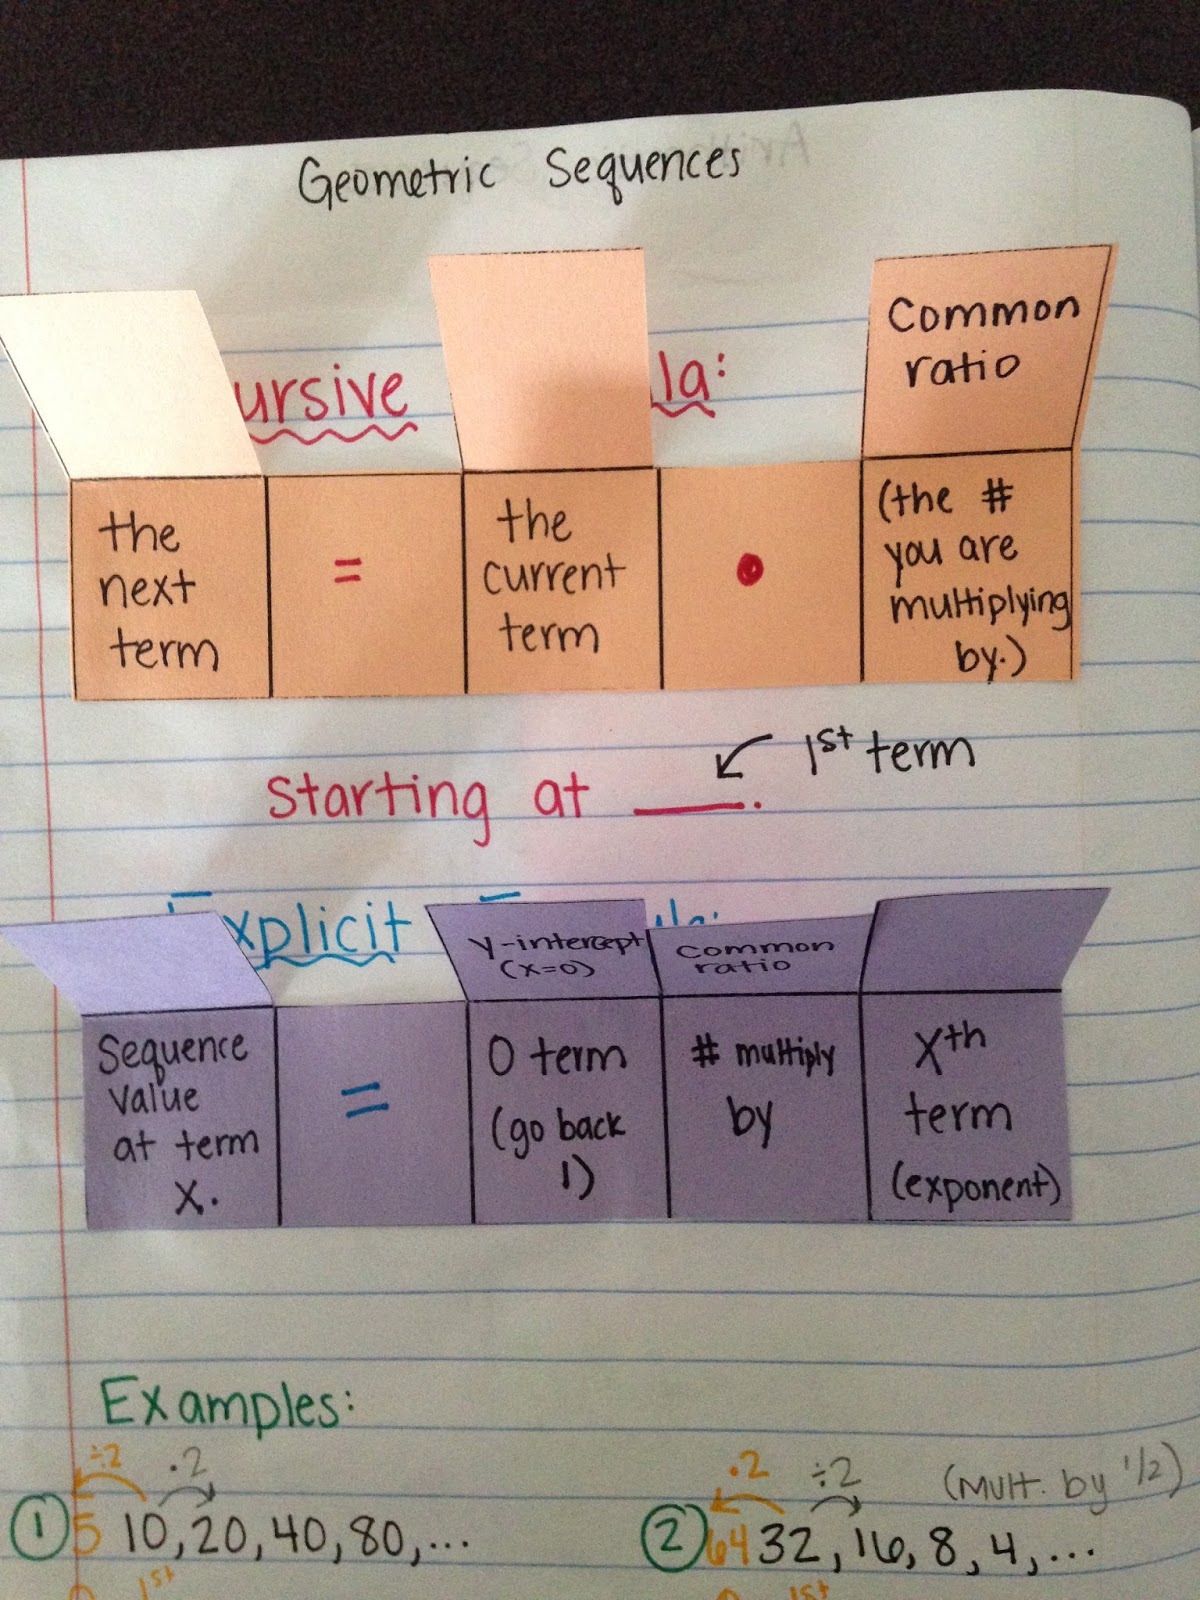 Geometric Sequences
ursive la:
Common
ratio
the
next
term
=
the
current
term
•
(the #
you are
multiplying
by.)
Starting at ____.
1st term
Explicit
y-intercept
(x=0)
common
ratio
Sequence
value
at term
X.
=
0 term
(go back
1)
# multiply
by
Xth
term
(exponent)
Examples:
÷2 ·2
① 5 10, 20, 40, 80, ...
0 1st
·2 ÷2 (Mult. by 1/2)
② 64 32, 16, 8, 4, ...
0 1st